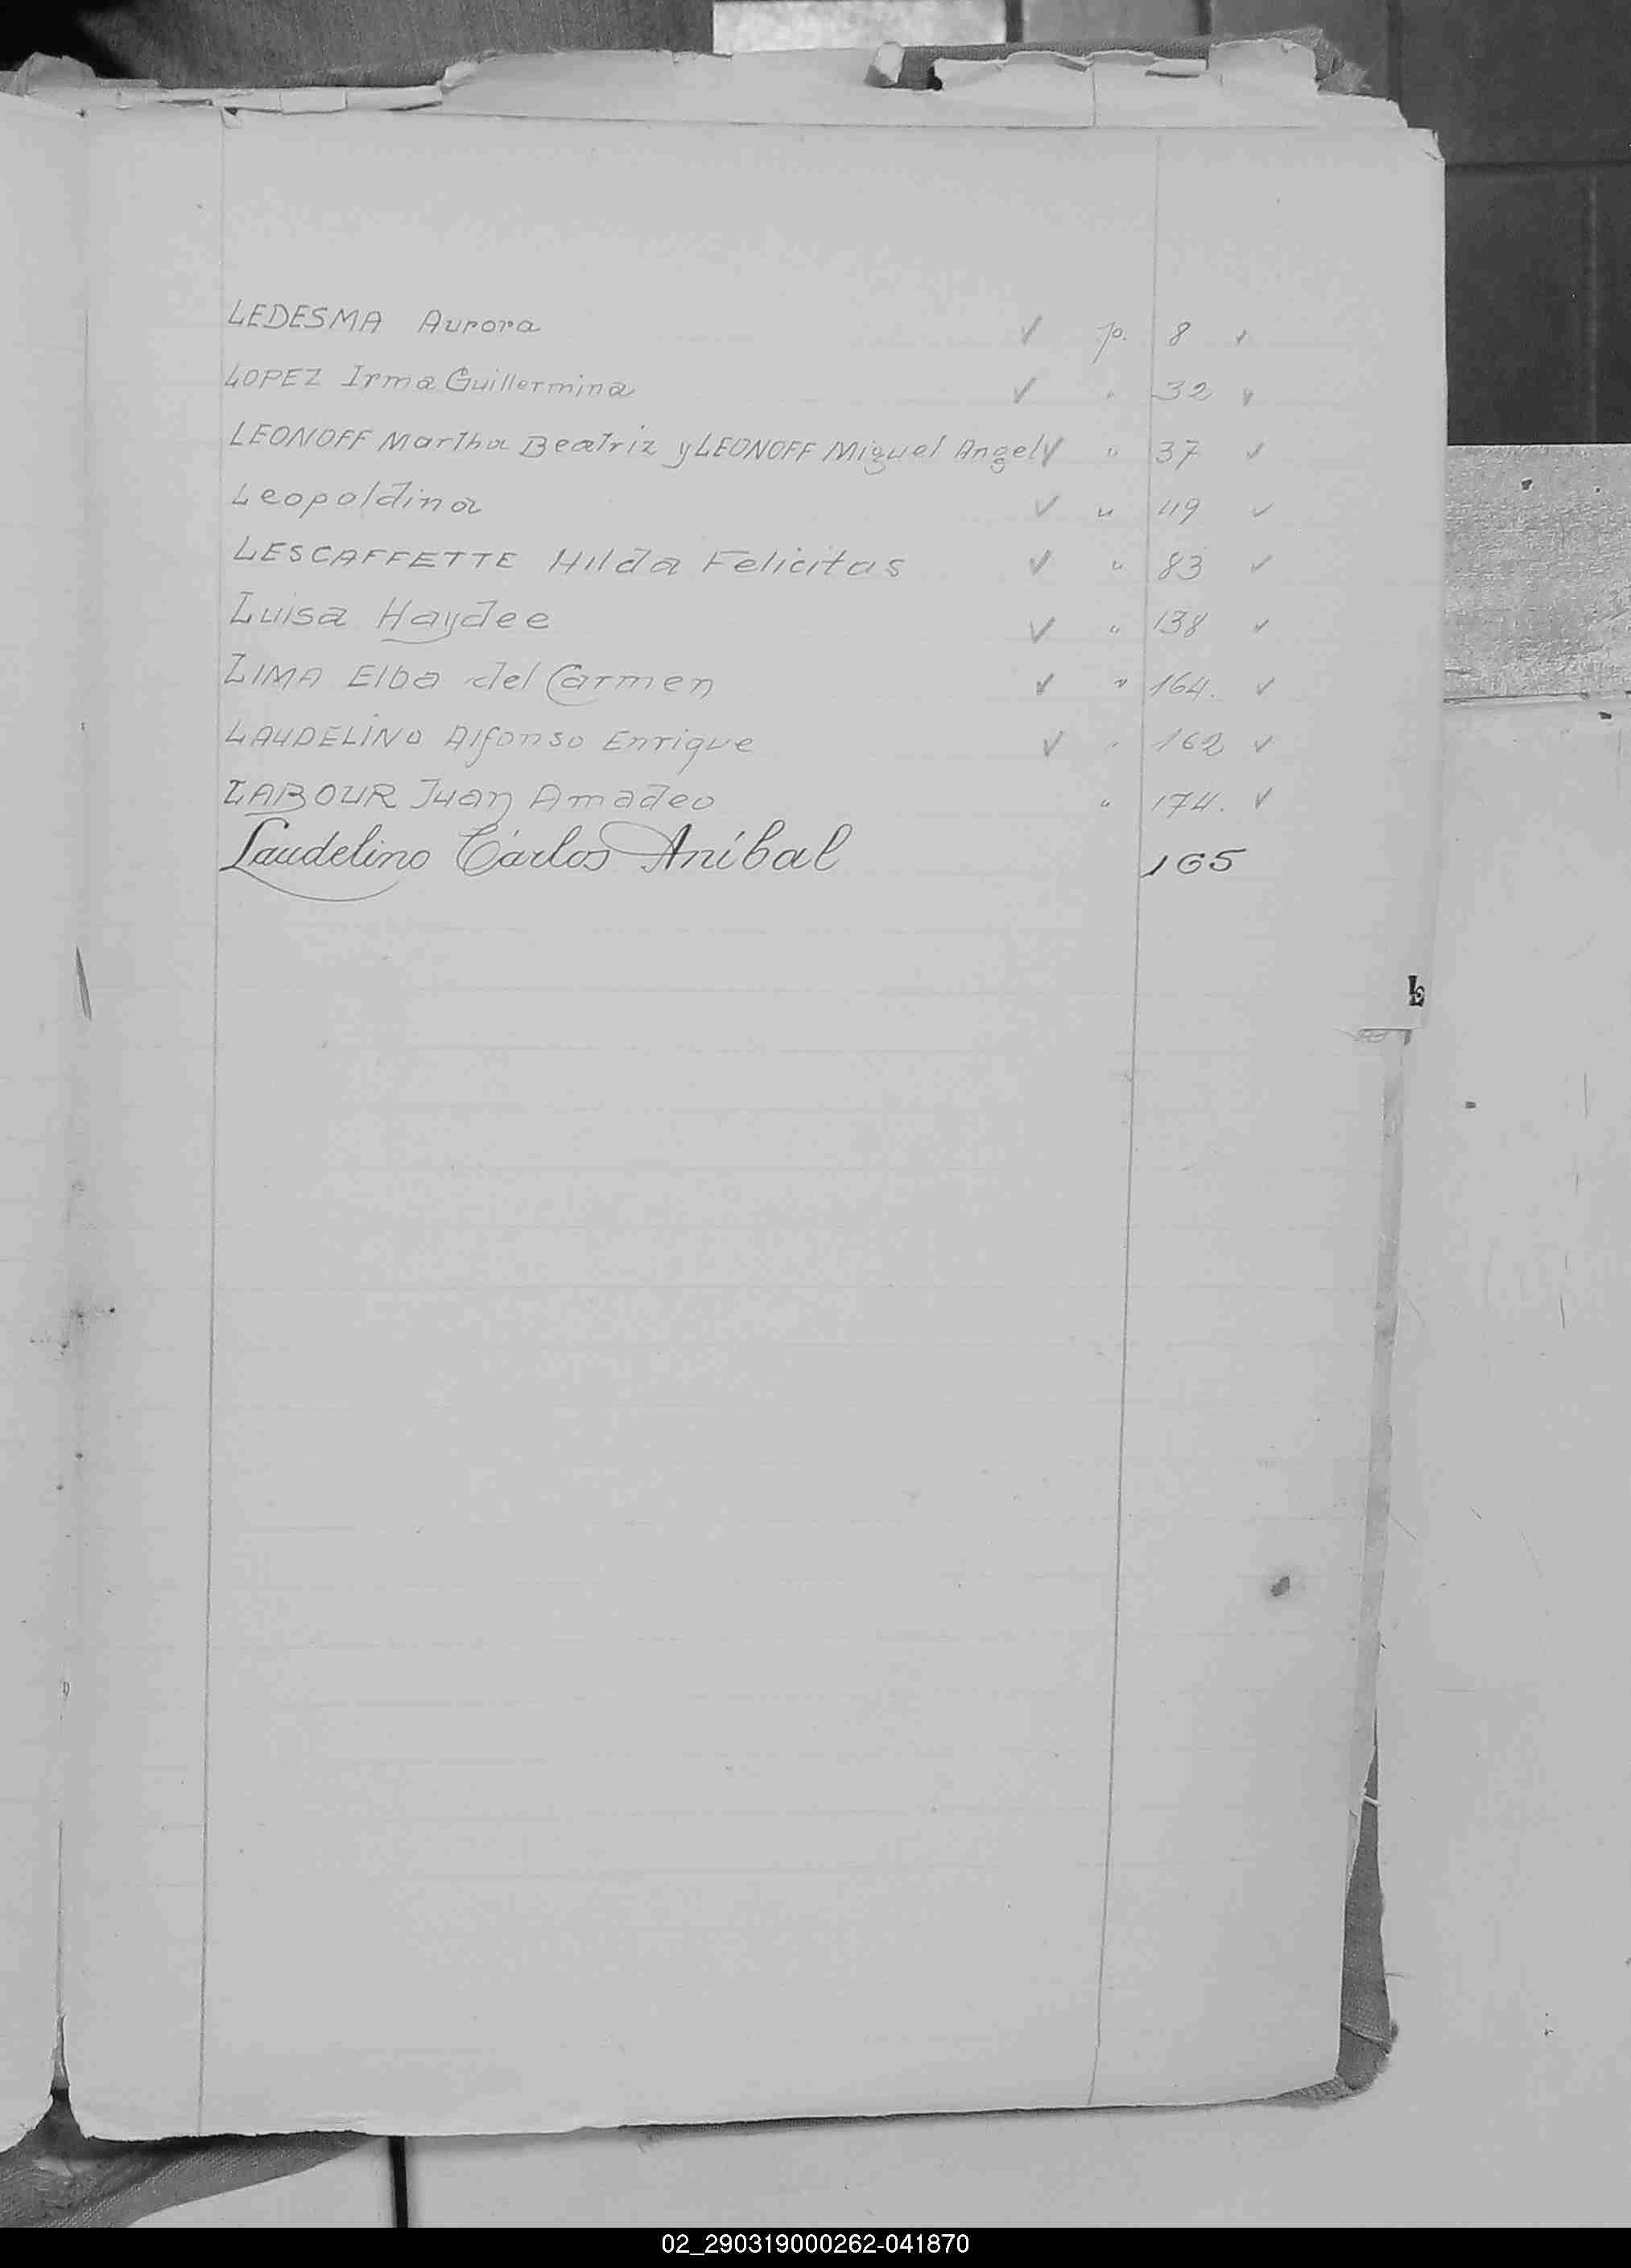 LEDESMA Aurora ✓ p. 8 ✓
LOPEZ Irma Guillermina ✓ " 32 ✓
LEONOFF Martha Beatriz y LEONOFF Miguel Angel ✓ " 37 ✓
Leopoldina ✓ " 49 ✓
LESCAFFETTE Hilda Felicitas ✓ " 83 ✓
Luisa Haydee ✓ " 138 ✓
LIMA Elba del Carmen ✓ " 164. ✓
LAUDELINO Alfonso Enrique ✓ " 162 ✓
LABOUR Juan Amadeo " 174. ✓
Laudelino Carlos Aníbal 165
L
02_290319000262-041870